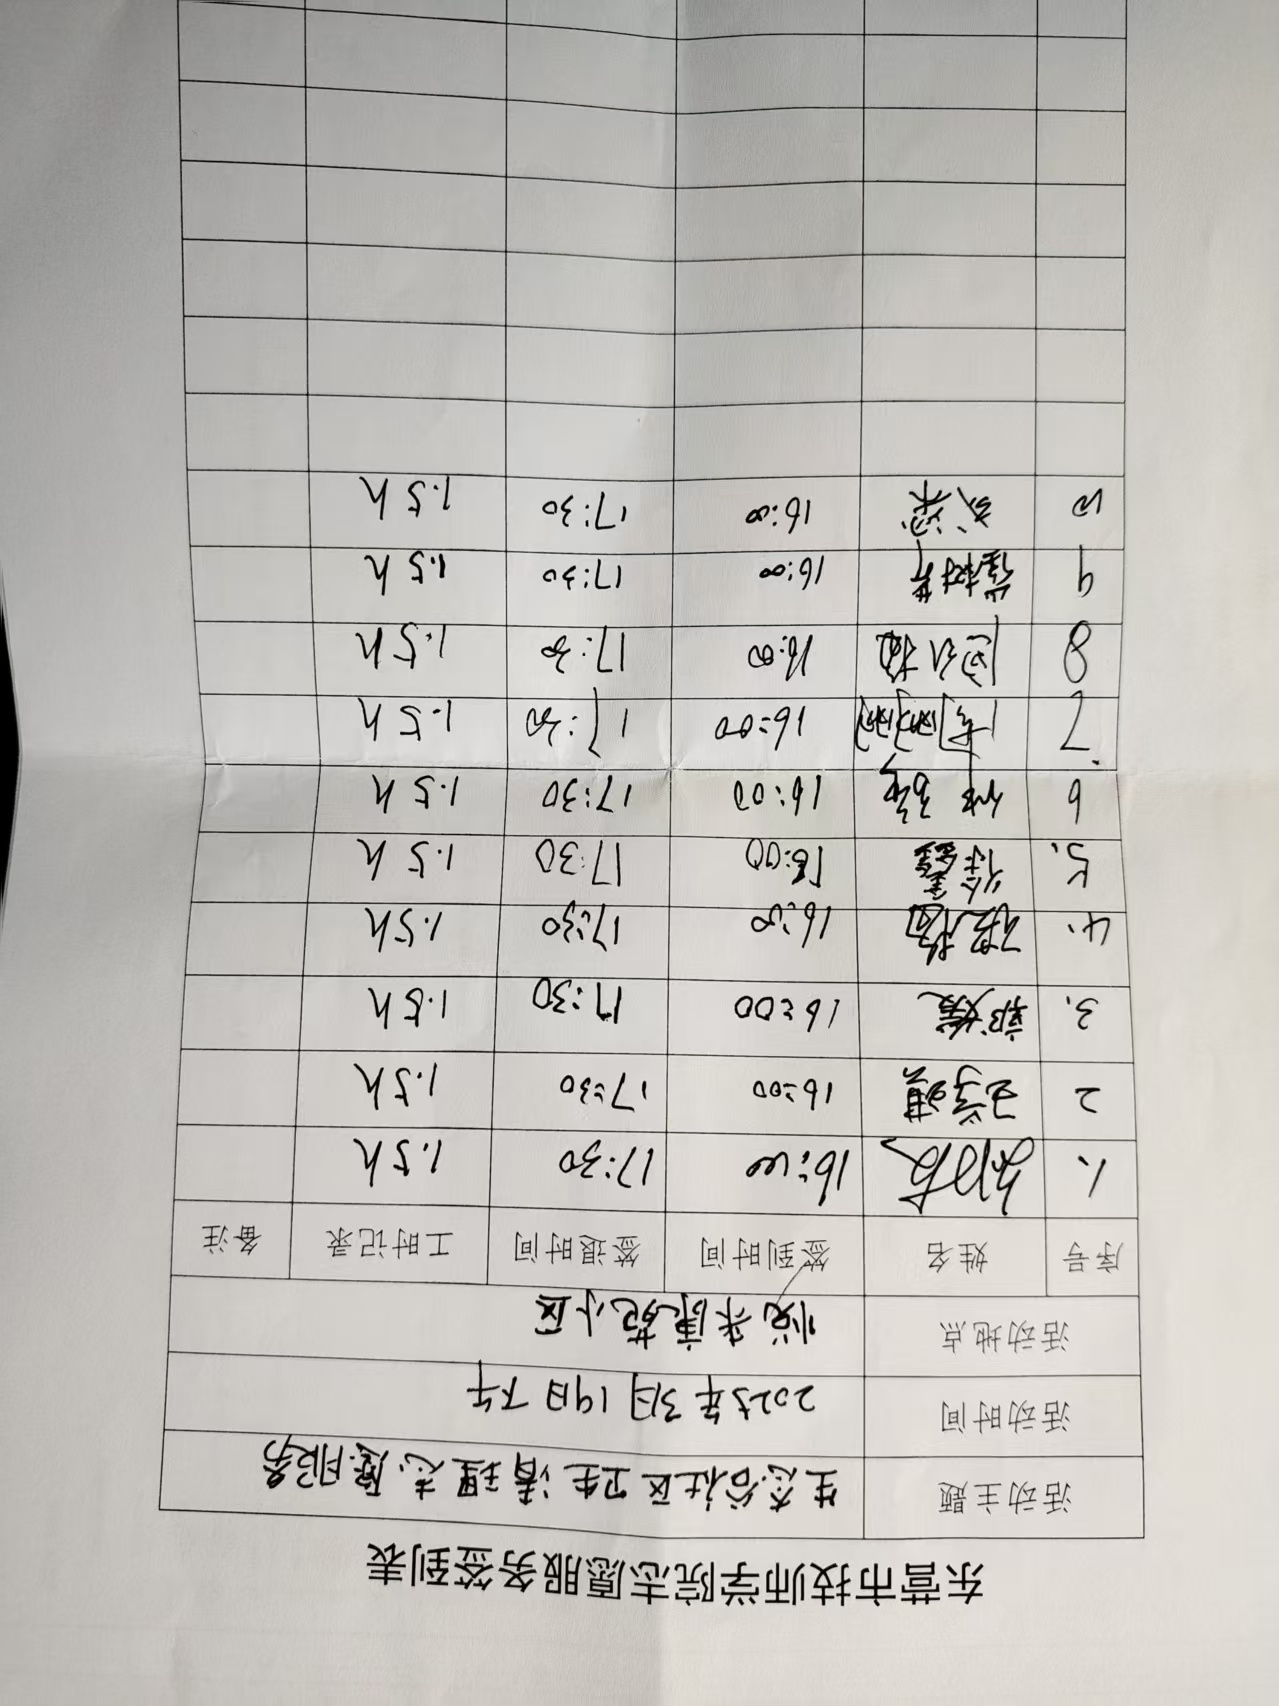 东营市技师学院志愿服务签到表
活动主题 生态谷社区卫生清理志愿服务
活动时间 2025年3月19日下午
活动地点 悦来康苑小区
序号 姓名 签到时间 签退时间 工时记录 备注
1. 16:00 17:30 1.5h
2 16:00 17:30 1.5h
3. 郭媛 16:00 17:30 1.5h
4. 16:00 17:30 1.5h
5. 徐鑫 16:00 17:30 1.5h
6 16:00 17:30 1.5h
7 16:00 17:30 1.5h
8 16:00 17:30 1.5h
9 16:00 17:30 1.5h
10 16:00 17:30 1.5h